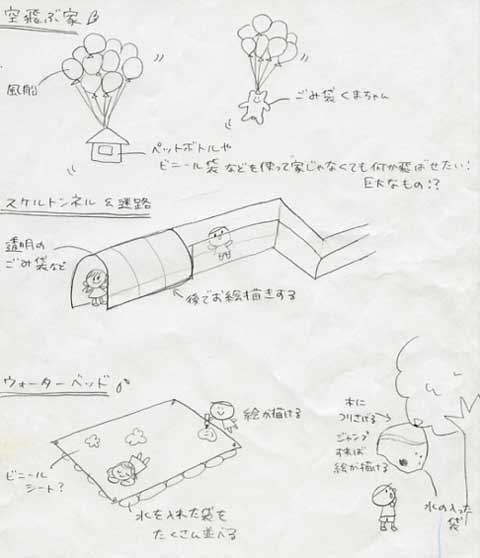 空飛ぶ家
風船
ごみ袋くまちゃん
ペットボトルや
ビニール袋などを使って家じゃなくても何か飛ばせたい:
巨大なもの:?
スケルトンネル & 迷路
透明の
ごみ袋など
後でお絵描きする
ウォーターベッド
絵が描ける
ビニール
シート?
水を入れた袋を
たくさん並べる
木に
つりさげる
ジャンプ
すれば
絵が描ける
水の入った
袋